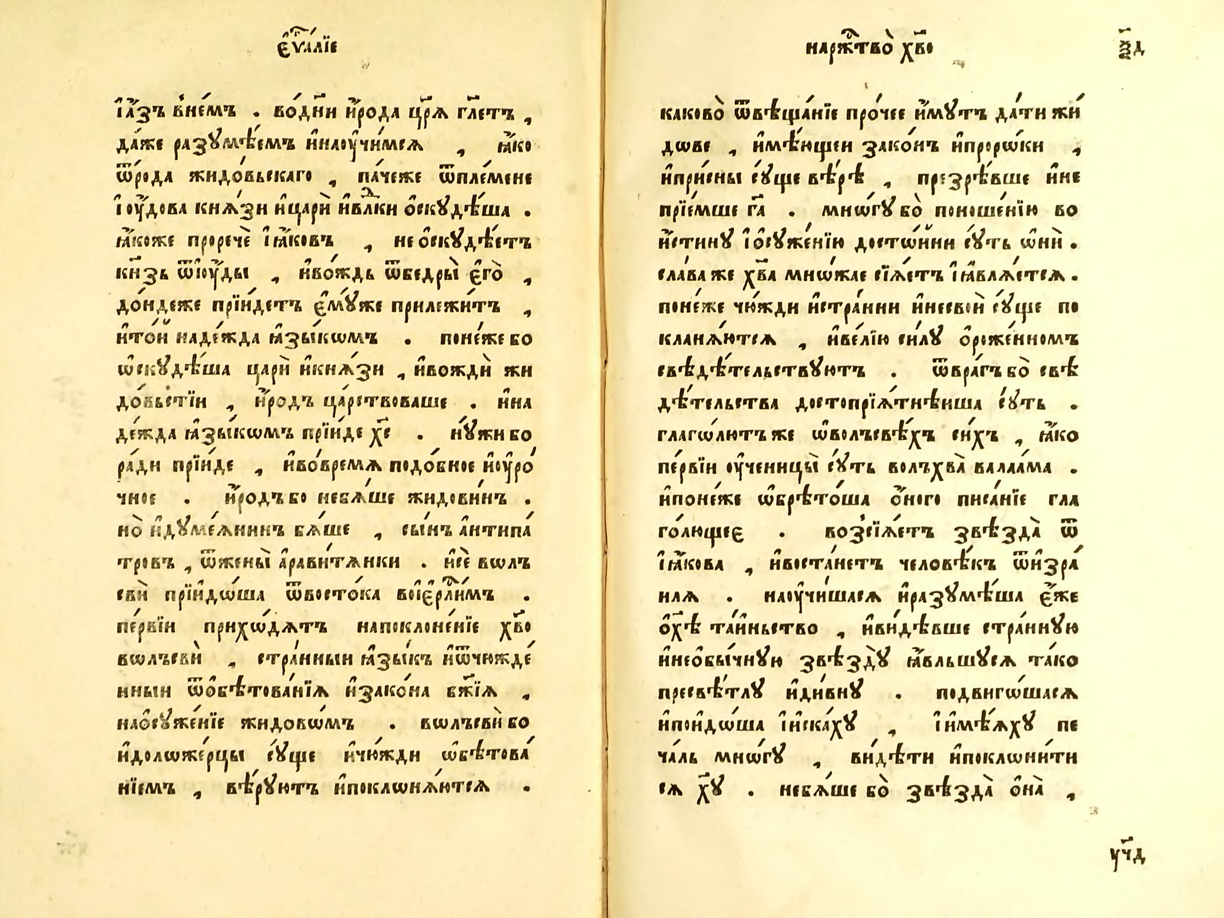 єѵⷢ҇аліе
і҆а҆́зъ в̾не́мъ . во́дни и҆́рода цр҃ѧ гл҃етъ ,
да́же разꙋмѣ́емъ и҆наоу҆чи́мсѧ , ꙗ҆́ко
ѿро́да жидо́вьскаго , па́чеже ѿпле́мене
і҆оу҆́дова кнѧ́зи и҆царѝ и҆влⷣки ѡ҆скꙋдѣ́ша .
ꙗ҆́коже проречѐ і҆ꙗ҆́ковъ , не ѡ҆скꙋдѣ́етъ
кн҃зь ѿію҆́ды , и҆во́ждь ѿбедры̀ є҆гѡ̀ ,
до́ндеже прїи́детъ є҆мꙋ́же прилежи́тъ ,
и҆то́й наде́жда ꙗ҆зы́кѡмъ . поне́же бо
ѡ҆скꙋдѣ́ша царѝ и҆кнѧ́зи , и҆вождѝ жи
до́вьстїи , и҆́родъ ца́рствоваше . и҆на
де́жда ꙗ҆зы́кѡмъ прїи́де хс҃ . нꙋ́жи бо
ра́ди прїи́де , и҆во́времѧ подо́бное и҆оу҆ро́
чное . и҆́родъ бо небѧ́ше жидови́нъ .
но̀ и҆дꙋме́ѧнинъ бѧ́ше , сы́нъ а҆нтипа́
тровъ , ѿжены̀ а҆равитѧ́нки . и҆се́ вѡлъ
свѝ прїидо́ша ѿвосто́ка воі҆єрⷭ҇ли́мъ .
пе́рвїи прихо́дѧтъ напоклоне́нїе хв҃о
вѡлъсвѝ , стра́нныи ꙗ҆зы́къ и҆ѿчюжде́
нныи ѿѡбѣтова́нїѧ и҆зако́на бж҃їѧ ,
наѡ҆сꙋже́нїе жидо́вѡмъ . вѡлъсвѝ бо
и҆доложе́рцы сꙋ́ще и҆чю́жди ѡ҆бѣтова́
нїемъ , вѣ́рꙋютъ и҆поклонѧ́ютсѧ .
нарⷤтво̀ хв҃о ѯ҃д
каково̀ ѿвѣща́нїе про́чее и҆́мꙋтъ да́ти жи́
дове , и҆мѣ́ющеи зако́нъ и҆проро́ки ,
и҆при́сны сꙋ́ще вѣ́рѣ , презрѣ́вше и҆не
прїе́мше гⷭ҇а . мно́гꙋ бо̀ поноше́нїю во
и҆́стинꙋ і҆ѡ҆сꙋже́нїю досто́йни сꙋ́ть ѡ҆нѝ .
сла́ва же хв҃а мно́жае сїѧ́етъ і҆ꙗ҆влѧ́етсѧ .
поне́же чю́жди и҆стра́нни и҆несвоѝ сꙋ́ще по
кланѧ́ютсѧ , и҆ве́лїю си́лꙋ ѡ҆рожде́нномъ
свѣдѣ́тельствꙋютъ . ѿвра́гъ бо̀ свѣ
дѣ́тельства достопрїѧ́тнѣиша сꙋ́ть .
глаго́лютъ же ѡ҆волъсвѣ́хъ си́хъ , ꙗ҆́ко
пе́рвїи оу҆ченицы̀ сꙋ́ть волъхва̀ валаа́ма .
и҆поне́же ѡ҆брѣто́ша о҆́ного писа́нїе гла
го́лющеє . возсїѧ́етъ звѣзда̀ ѿ
і҆ꙗ҆́кова , и҆воста́нетъ человѣ́къ ѿи҆зра́
илѧ . наоу҆чи́шасѧ и҆разꙋмѣ́ша є҆́же
ѡ҆хс҃ѣ та́йньство , и҆ви́дѣвше стра́ннꙋю
и҆неѡбы́чнꙋю звѣздꙋ̀ ꙗ҆́вльшꙋсѧ та́ко
пресвѣ́тлꙋ и҆ди́внꙋ . подвиго́шасѧ
и҆поидо́ша і҆и҆ска́хꙋ , і҆и҆мѣ́ѧхꙋ пе
ча́ль мно́гꙋ , ви́дѣти и҆поклони́ти
сѧ хꙋ҃ . небѧ́ше бо̀ звѣзда̀ ѻ҆на̀ ,
ꙋ҃чд